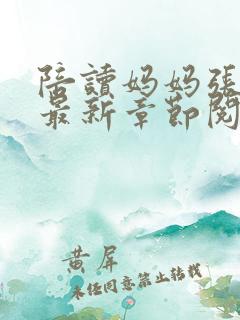 陪讀妈妈張
最新章節閱
黄屏
未经同意禁止转载